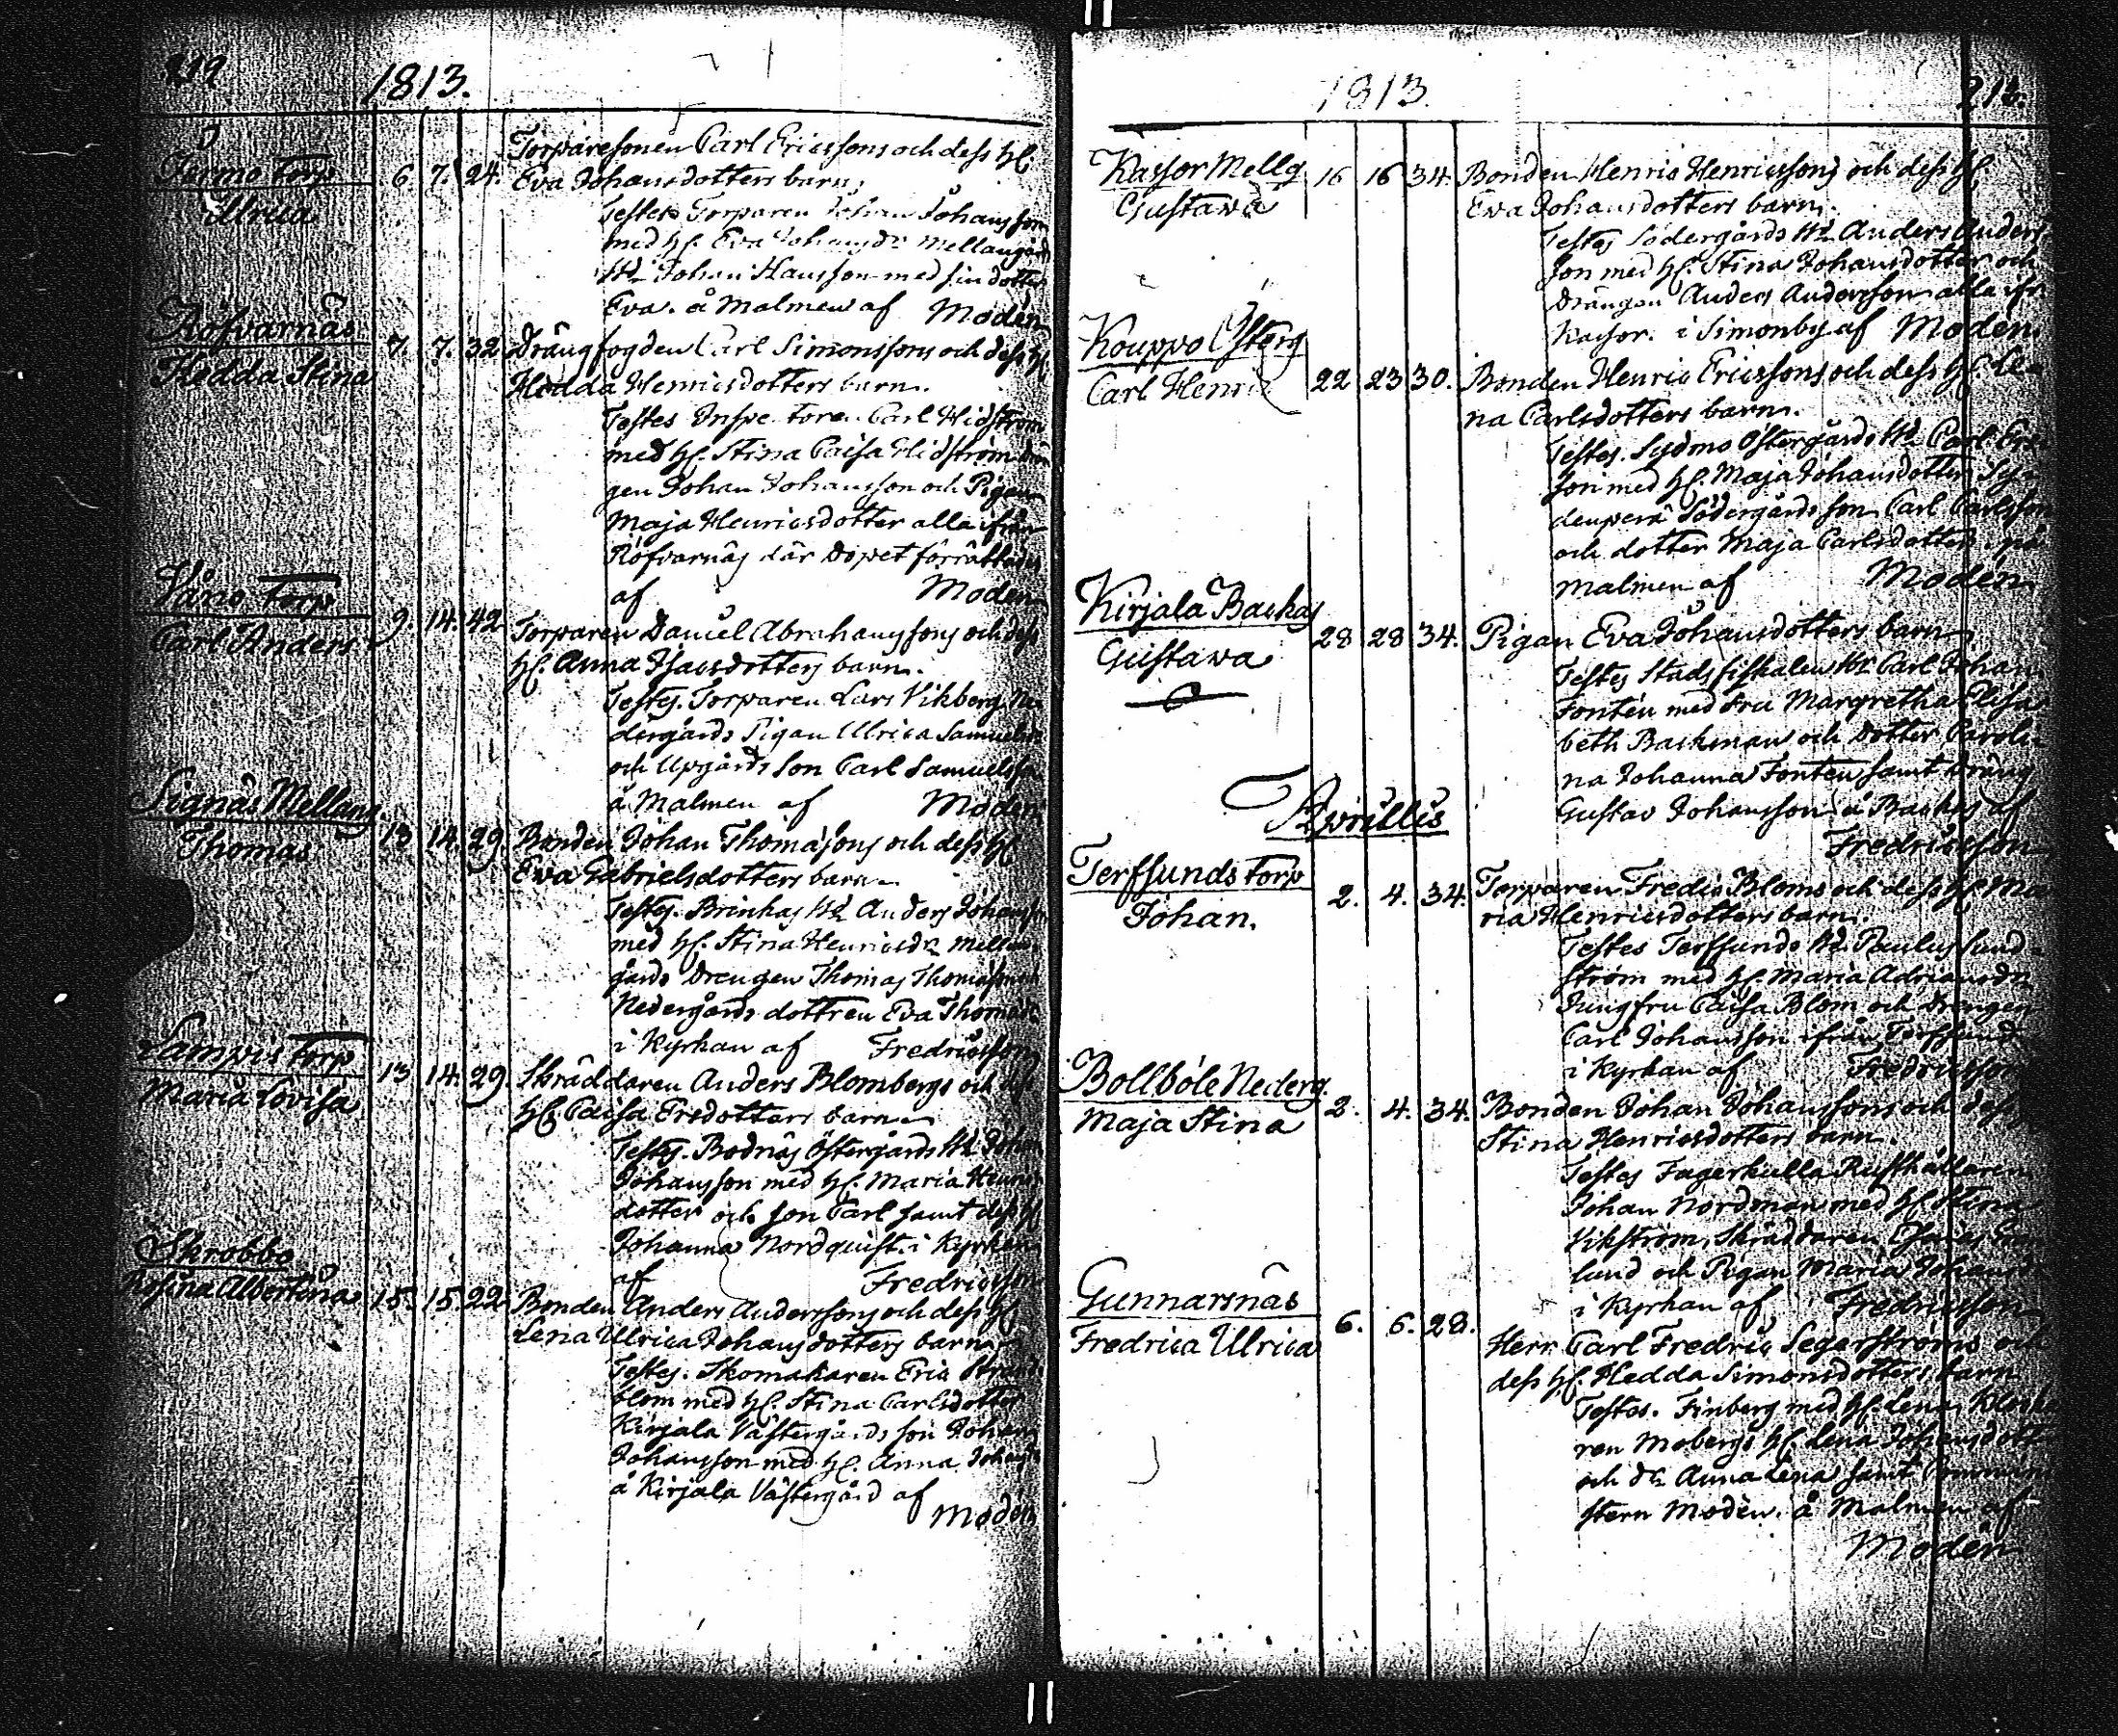 212
1813.
Jermo Torp
Ulrica
6. 7. 24.
Torparesonen Carl Ericssons och dess H.
Eva Johansdotters barn,
Testes Torparen Johan Johansson
med H. Eva Johansdr Mellangårds
Hd Johan Hansson med sin dotter
Eva. å Malmen af Modén
Röfvarnäs
Hedda Stina
7. 7. 32
Drängfogden Carl Simonssons och dess H.
Hedda Henricsdotters barn.
Testes Inspectoren Carl Hidström
med H. Stina Caisa Hidström Drän
gen Johan Johansson och Pigan
Maja Henricsdotter alla ifrån
Röfvarnäs där Dopet förrättades
af Modén
Våno Torp
Carl Anders
9. 14. 42
Torparen Daniel Abrahamssons och dess
H. Anna Isacsdotters barn.
Testes. Torparen Lars Vikberg Ne-
dergårds Pigan Ulrica Samuelsdr
och Upgårds son Carl Samuelsson
å Malmen af Modén
Signäs Mellang.
Thomas
13 14. 29.
Bonden Johan Thomassons och dess H.
Eva Gabrielsdotters barn.
Testes. Brinkas Hd Anders Johansson
med H. Stina Henricsdr Mellan-
gårds Drengen Thomas Thomasson och
Nedergårds dottren Eva Thomasdr
i Kyrkan af Fredricsson
Lampis Torp
Maria Lovisa
13 14. 29.
Skräddaren Anders Blombergs och dess
H. Caisa Ersdotters barn.
Testes. Bodnäs Östergårds Hd Johan
Johansson med H. Maria Henrics
dotter och son Carl samt dess H.
Johanna Nordquist. i Kyrkan
af Fredricsson
Skrobbo
Rosina Albertina
15. 15. 22.
Bonden Anders Anderssons och dess H.
Lena Ulrica Johansdotters barn.
Testes. Skomakaren Eric Strand
blom med H. Stina Carlsdotter
Kirjala Västergårds son Johan
Johansson med H. Anna Johansdr
å Kirjala Västergård af
Modén
1813.
213.
Kassor Mellg
Gustava
16 16 34.
Bonden Henric Henricssons och dess H.
Eva Johansdotters barn.
Testes Södergårds Hd Anders Anders
son med H. Stina Johansdotter och
Drängen Anders Andersson alla ifr.
Kassor. i Simonby af Modén
Kouppo Österg
Carl Henric
22 23 30.
Bonden Henric Ericssons och dess H. Le-
na Carlsdotters barn.
Testes. Sydmo Östergårds Hd Carl Erics
son med H. Maja Johansdotter Sy-
denperä Södergårds son Carl Carlsson
och dotter Maja Carlsdotter på
Malmen af Modén
Kirjala Backas
Gustava
28 28 34.
Pigan Eva Johansdotters barn
Testes Stadsfiskalen Hr Carl Johan
Fontén med Fru Margretha Elisa
beth Backman och Dotter Caroli-
na Johanna Fontén samt Dräng
Gustav Johansson å Backas af
Fredricsson
Aprillis
Terfsunds Torp
Johan.
2. 4. 34.
Torparen Fredric Bloms och dess H. Ma
ria Henricsdotters barn.
Testes Terfsunds Hd. Paulus Sund-
ström med H. Maria Adriansdr
Jungfru Caisa Blom och Drengen
Carl Johansson ifrån Terfsund
i Kyrkan af Fredricsson
Bollböle Nederg.
Maja Stina
2. 4. 34.
Bonden Johan Johanssons och dess
Stina Henricsdotters barn.
Testes Fagerkulla Rusthållaren
Johan Nordman med H. Stina
Vikström, Skräddaren
lund och Pigan Maria Johansdr
i Kyrkan af Fredricsson
Gunnarsnäs
Fredrica Ulrica
6. 6. 28.
Herr Carl Fredric Segerströms och
dess H. Hedda Simonsdotters barn
Testes. Finberg med H. Lena, Klocka
ren Mobergs H. Lena Johansdotter
och dr Anna Lena samt Commini
stern Modén. å Malmen af
Modén